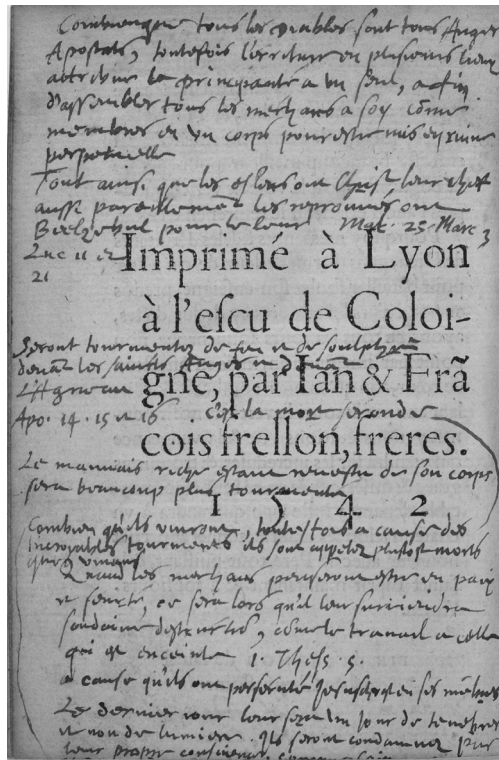 Combien que tous les diables sont tous Anges
Apostats, toutefois l'escriture en plusieurs lieux
attribue la principauté a un seul, afin
d'assembler tous les meschans a soy cōme
membres en un corps pour estre mis en ruine
perpetuelle
Tout ainsi que les esleus ont Christ leur chef
aussi pareillement les reprouués ont
Beelzebul pour le leur Mat. 25. Marc 3
Luc 11 et
21
Imprimé à Lyon
à l'eſcu de Coloi-
Seront tourmentez de feu et de soulphre
deuāt les saincts Anges et deuant
gne, par Ian & Frã
L'Agneau
Apo. 14. 15 et 16 C'est la mort seconde
cois frellon, freres.
Le mauuais riche estant reuestu de son corps
sera beaucoup plus tourmenté
1 5 4 2
Combien qu'ils viuront, toutesfois a cause des
incroyables tourmens ils sont appelez plustost morts
que viuans
Quand les meschans penseront estre en paix
et seurté, ce sera lors qu'il leur suruiendra
soudaine destructiō, cōme le trauail a celle
qui est enceinte 1. Thess. 5.
a cause qu'ils ont persecuté Jesuschrist en ses mēbres
Le dernier iour leur sera un jour de tenebres
et non de lumiere. Ils seront condamnez par
leur propre conscience